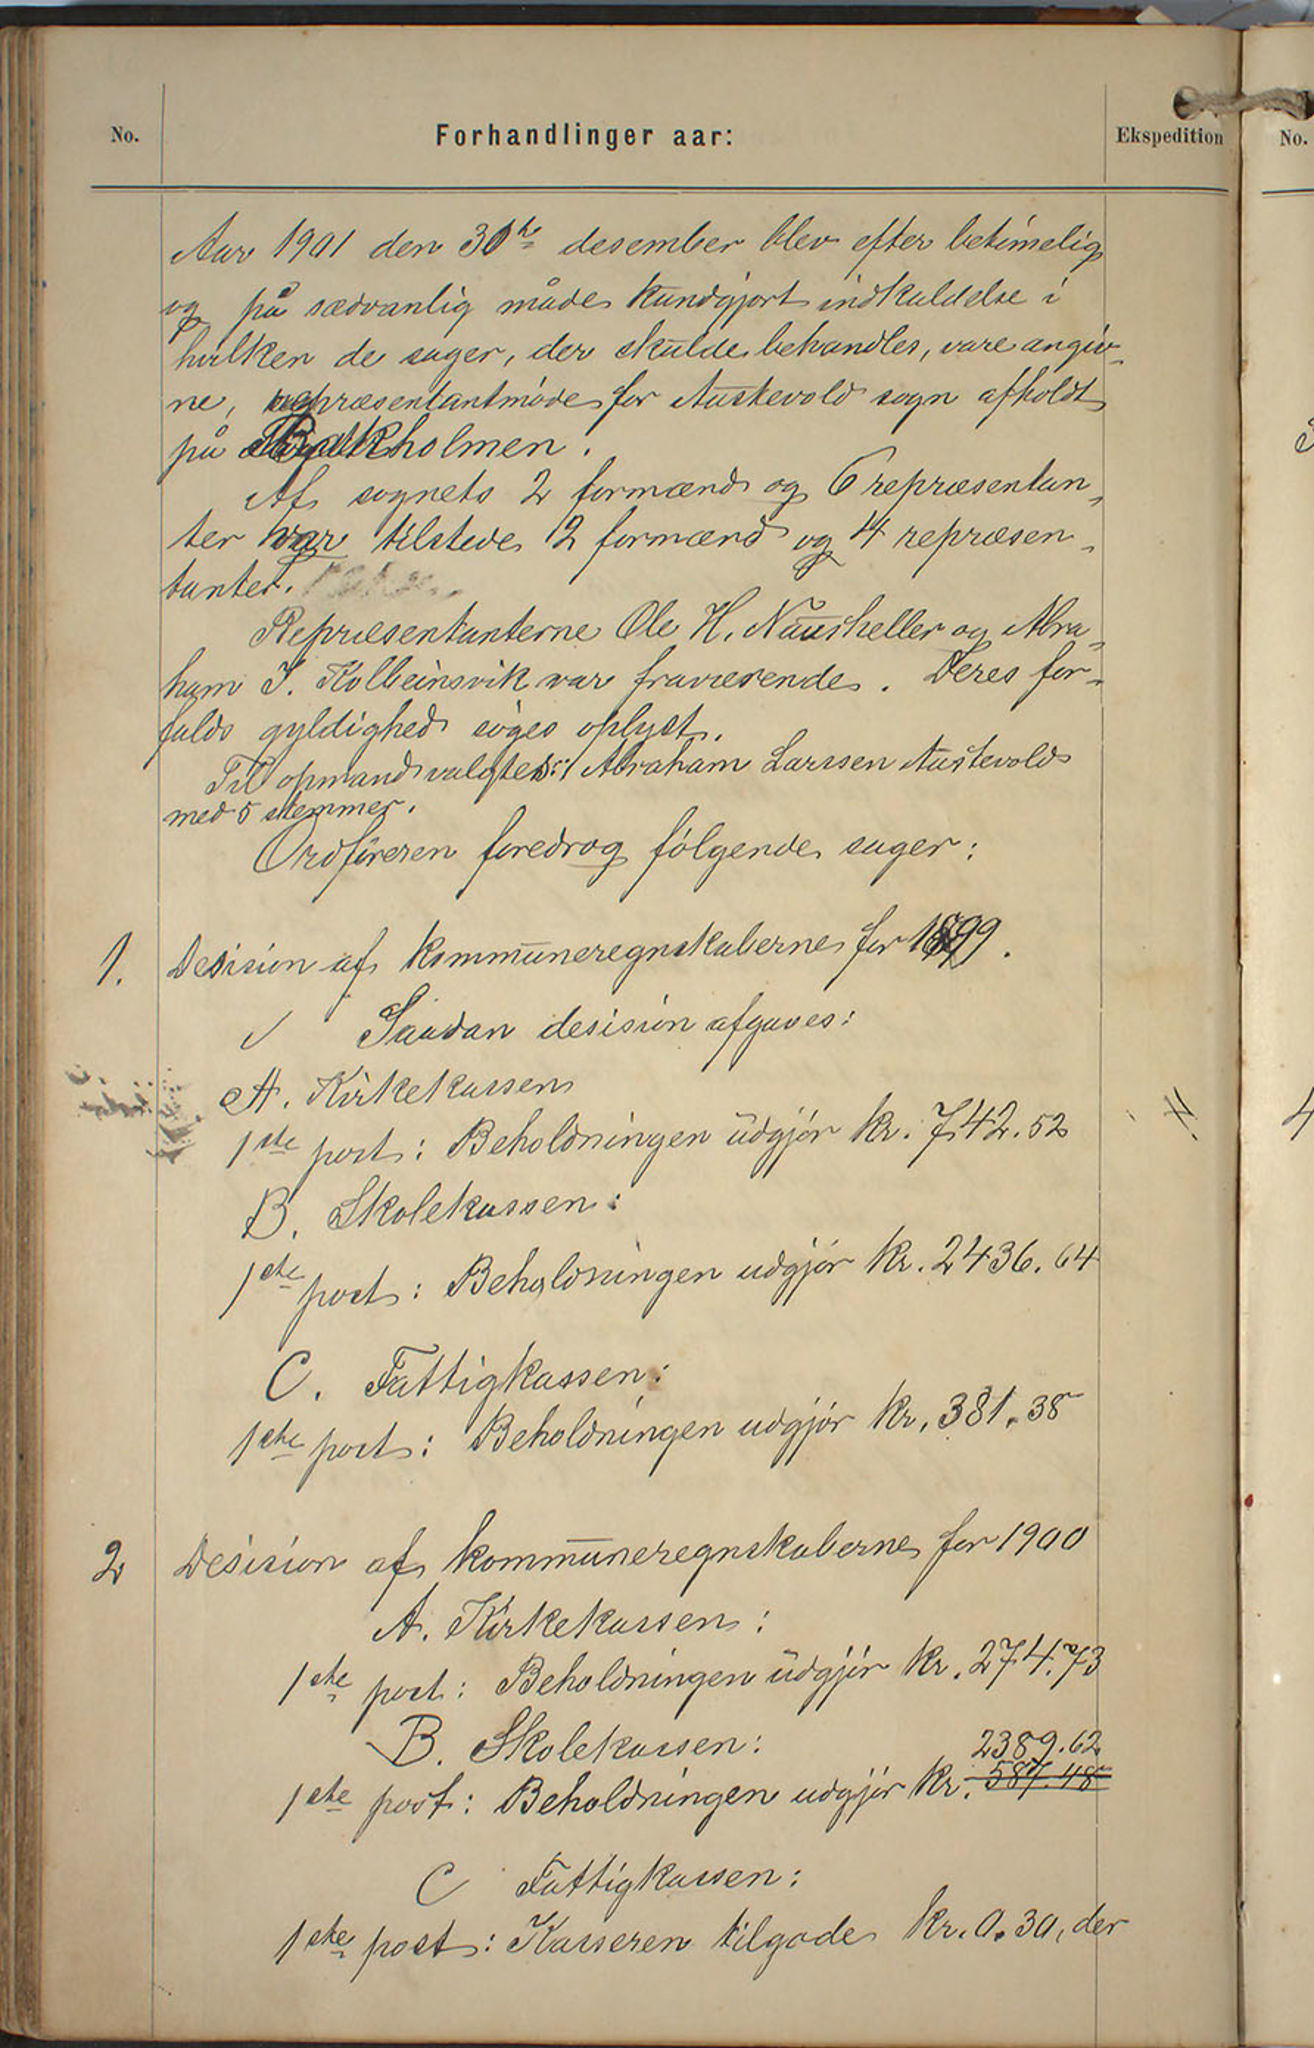 No.
Forhandlinger aar:
Ekspedition
No.
Aar 1901 den 30te desember blev efter betimelig
og på sædvanlig måde kundgjort indkaldelse i
hvilken de sager, der skulde behandles, vare angiv-
ne, repræsentantmøde for Austevold sogn afholdt
på Bakholmen.
Af sognets 2 formænd og 6 repræsentan-
ter var tilstede 2 formænd og 4 repræsen-
tanter.
Repræsentanterne Ole H. Nausheller og Abra-
ham I. Kolbeinsvik var fraværende. Deres for-
falds gyldighed søges oplyst.
Til opmand valgtes: Abraham Larssen Austevold
med 5 stemmer.
Ordføreren foredrog følgende sager:
1. Desision af kommuneregnskaberne for 1899.
Saadan desision afgaves:
A. Kirkekassen
1ste post: Beholdningen udgjør kr. 742.52
B. Skolekassen:
1ste post: Beholdningen udgjør kr. 2436.64
C. Fattigkassen:
1ste post: Beholdningen udgjør kr. 381.38
2 Desision af kommuneregnskaberne for 1900
A. Kirkekassen:
1ste post: Beholdningen udgjør kr. 274.73
B. Skolekassen:
2389.62
1ste post: Beholdningen udgjør kr. 587.48
C Fattigkassen:
1ste post: Kasseren tilgode kr. 0.30, der